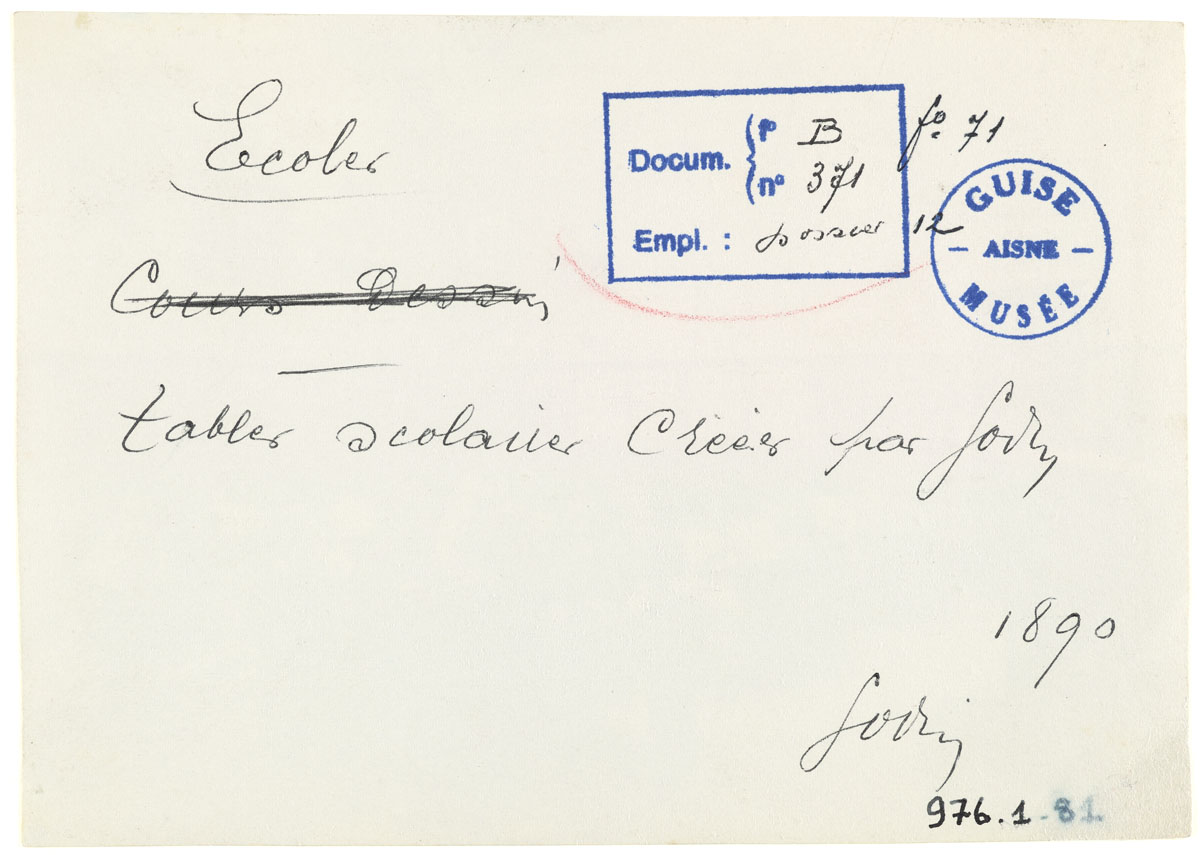 Ecoles
Docum. { f° B f° 71
n° 371
Empl. : dossier 12
GUISE
AISNE
MUSÉE
Cours Dessin
tables scolaires Créées par Godin
1890
Godin
976.1.81.